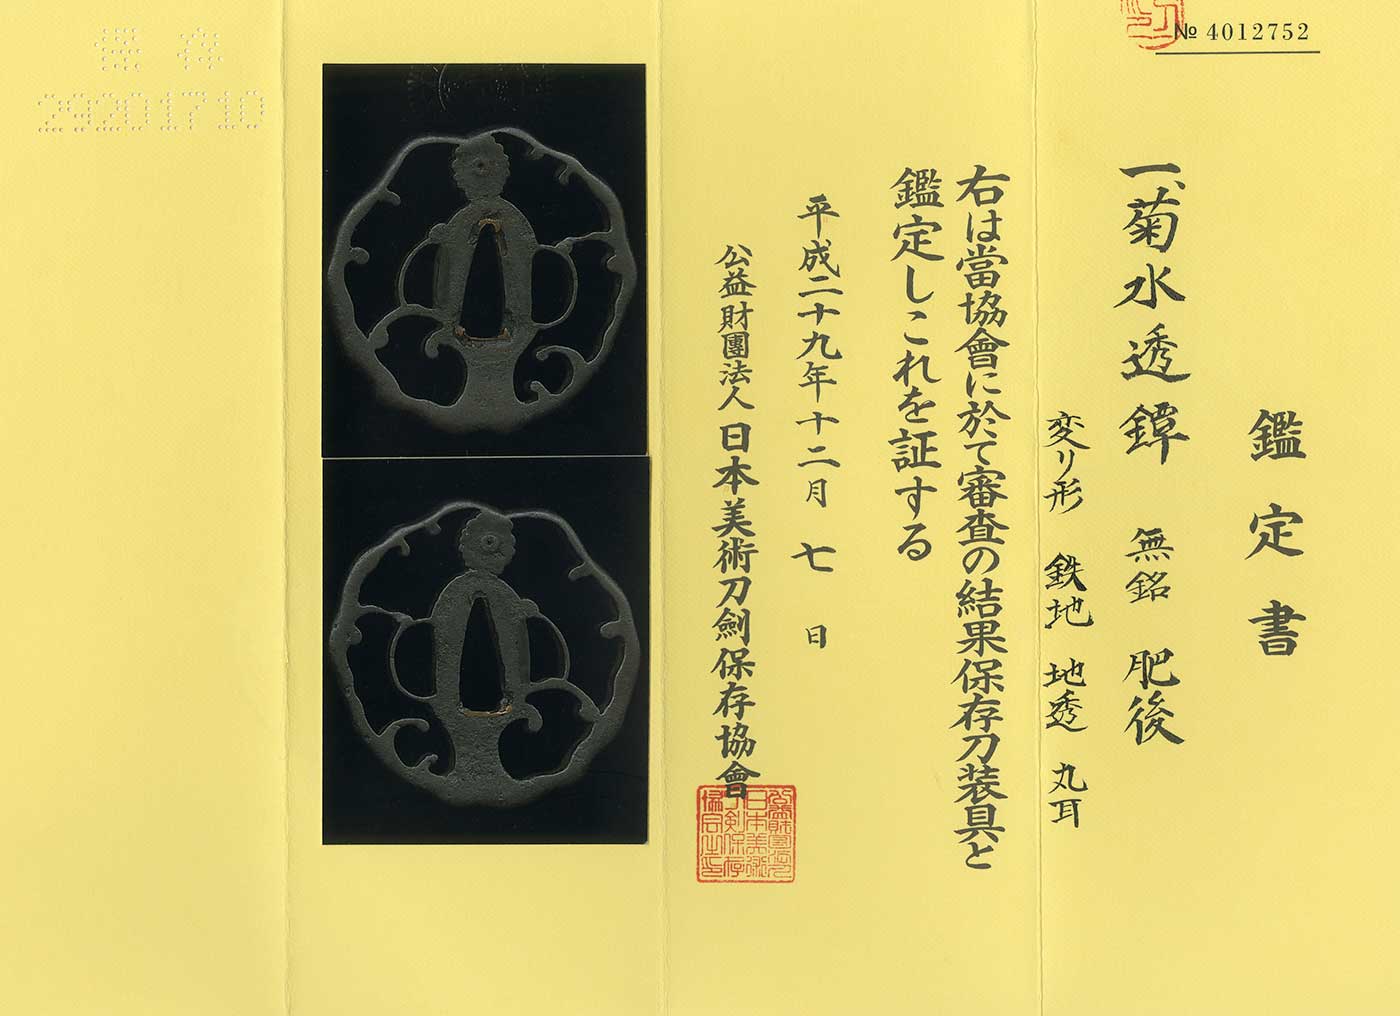 № 4012752
鑑定書
一、菊水透鐔 無銘 肥後
変り形 鉄地 地透 丸耳
右は當協會に於て審査の結果保存刀装具と
鑑定しこれを証する
平成二十九年十二月七日
公益財團法人日本美術刀劍保存協會
保存
29201710